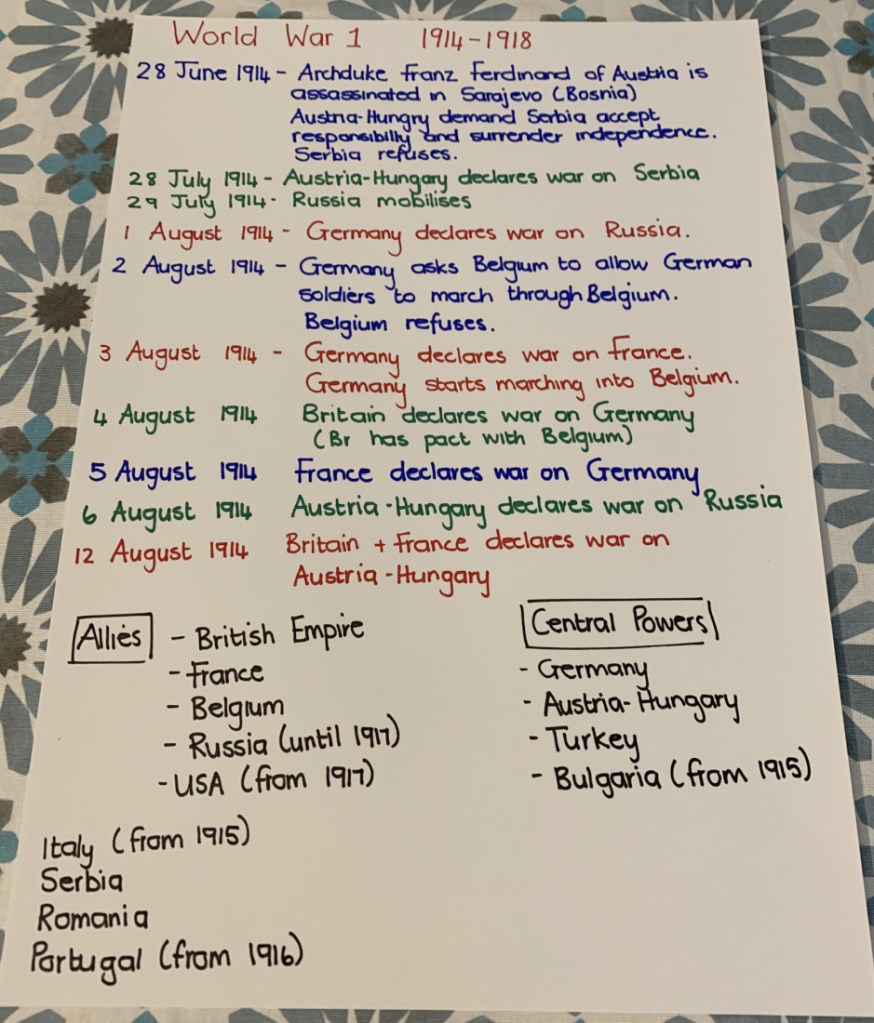 World War 1 1914-1918
28 June 1914 - Archduke Franz Ferdinand of Austria is
assassinated in Sarajevo (Bosnia)
Austria-Hungry demand Serbia accept
responsibility and surrender independence.
Serbia refuses.
28 July 1914 - Austria-Hungary declares war on Serbia
29 July 1914 - Russia mobilises
1 August 1914 - Germany declares war on Russia.
2 August 1914 - Germany asks Belgium to allow German
soldiers to march through Belgium.
Belgium refuses.
3 August 1914 - Germany declares war on France.
Germany starts marching into Belgium.
4 August 1914 Britain declares war on Germany
(Br has pact with Belgium)
5 August 1914 France declares war on Germany
6 August 1914 Austria-Hungary declares war on Russia
12 August 1914 Britain + France declares war on
Austria-Hungary
Allies - British Empire
- France
- Belgium
- Russia (until 1917)
- USA (from 1917)
Italy (from 1915)
Serbia
Romania
Portugal (from 1916)
Central Powers
- Germany
- Austria-Hungary
- Turkey
- Bulgaria (from 1915)